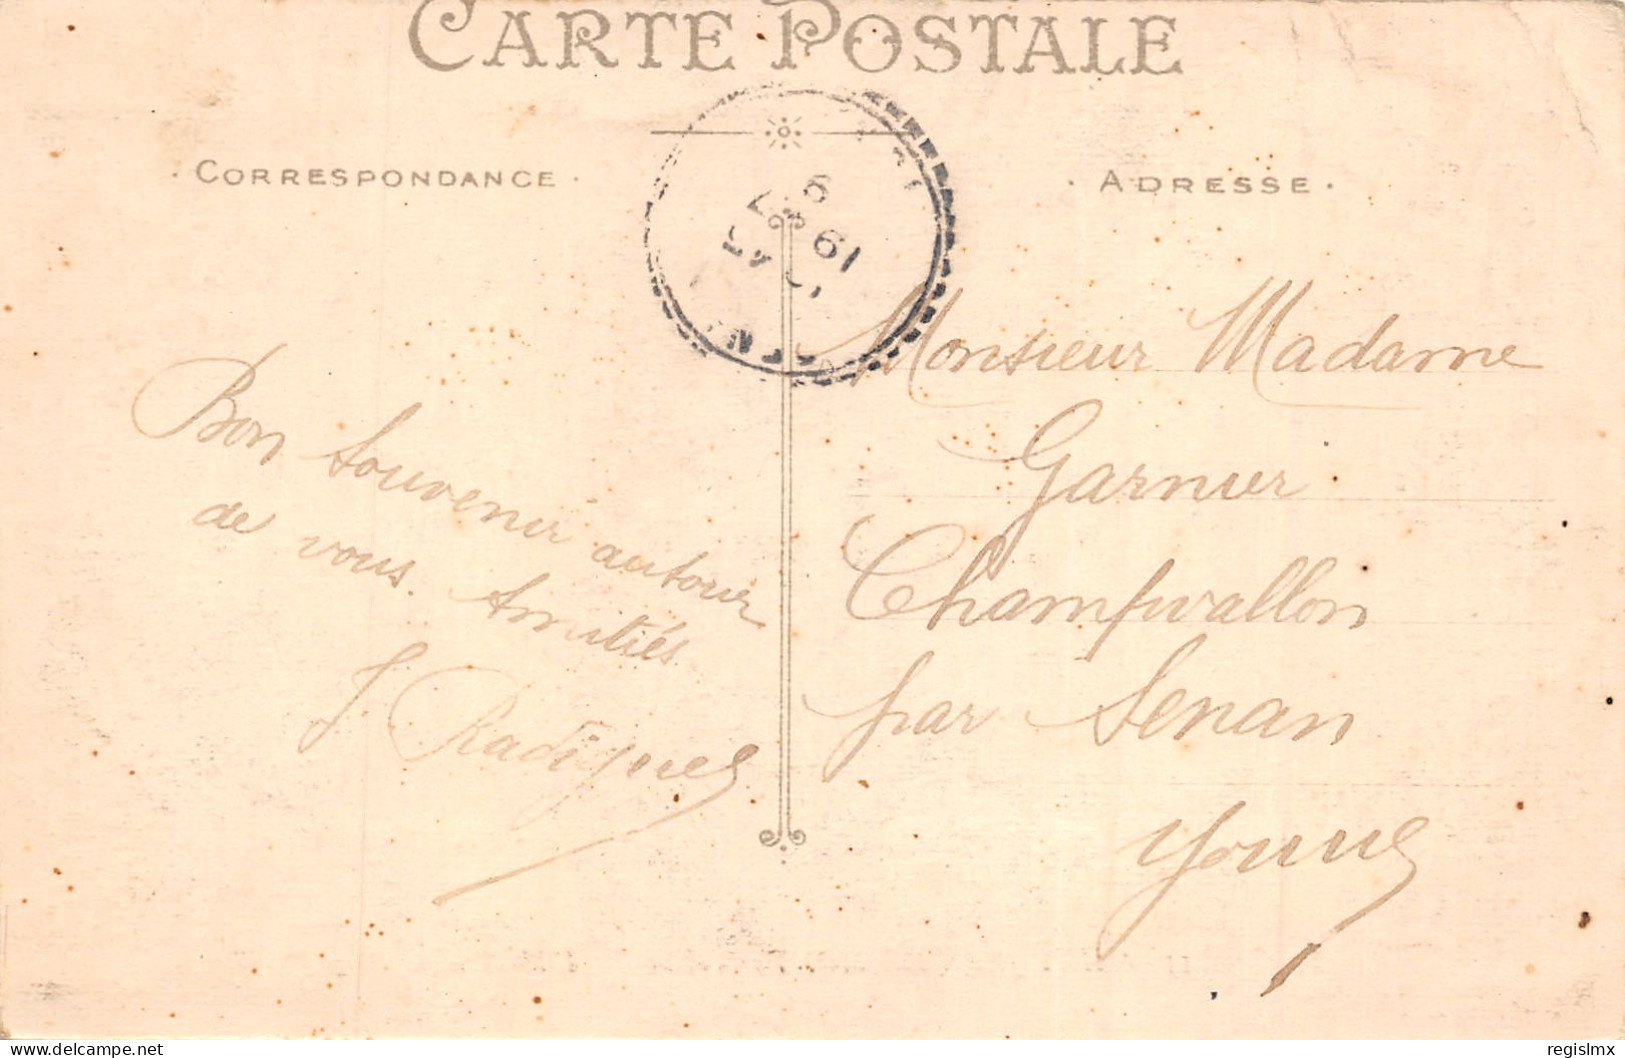 CARTE POSTALE
CORRESPONDANCE
ADRESSE
Bon souvenir autour
de vous. Amitiés
J Radigues
Monsieur Madame
Garnier
Champvallon
par Senan
Yonne
www.delcampe.net
regislmx